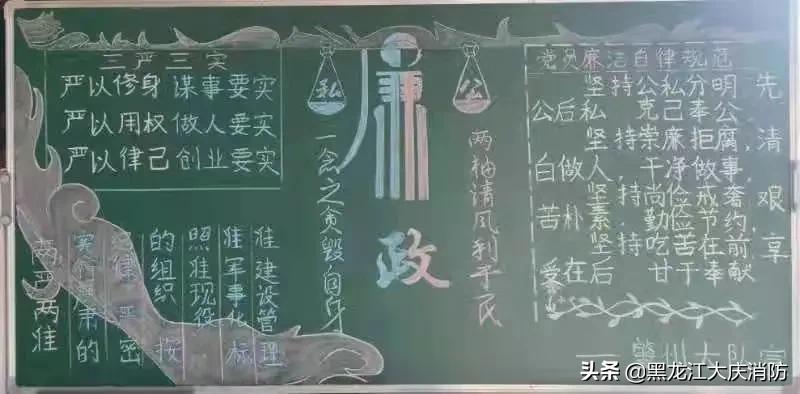 三严三实
严以修身 谋事要实
严以用权 做人要实
严以律己 创业要实
两严两准
实行严肃的
纪律 严密
的组织 按
照准现役
准军事化标
准建设管理
私
一念之贪毁自身
廉政
公
两袖清风利于民
党员廉洁自律规范
坚持公私分明 先
公后私 克己奉公
坚持崇廉拒腐,清
白做人,干净做事,
坚持尚俭戒奢 艰
苦朴素,勤俭节约,
坚持吃苦在前 享
受在后 甘于奉献
肇州大队 宣
头条 @黑龙江大庆消防